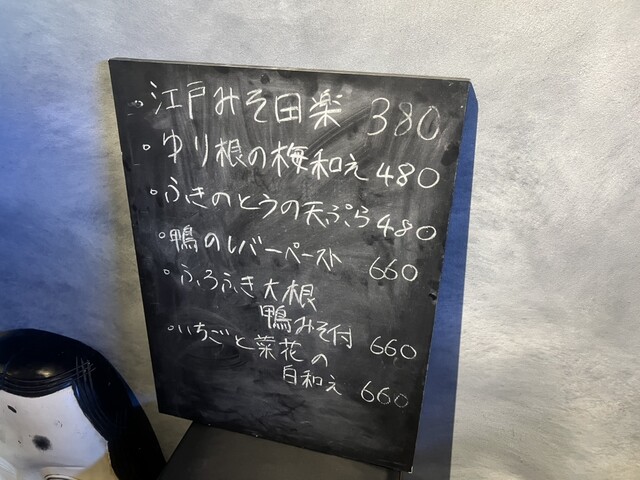 。江戸みそ田楽 380
。ゆり根の梅和え 480
。ふきのとうの天ぷら 480
。鴨のレバーペースト 660
。ふろふき大根
鴨みそ付 660
。いちごと菜花の
白和え 660